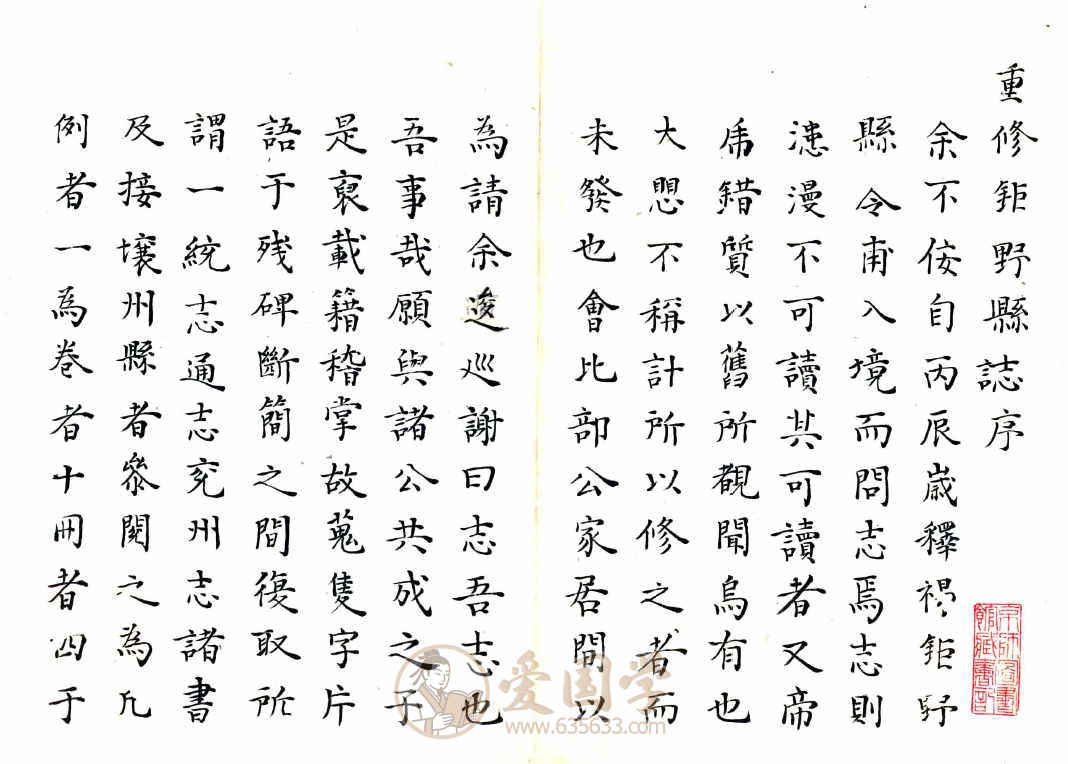 重修鉅野縣誌序
余不佞自丙辰歲釋褐鉅野
縣令甫入境而問志焉志則
漶漫不可讀其可讀者又帝
乕錯質以舊所覩聞烏有也
大愳不稱計所以修之者而
未發也會比部公家居間以
為請余逡巡謝曰志吾志也
吾事哉願與諸公共成之于
是裒載籍稽掌故蒐隻字片
語于残碑斷簡之間復取所
謂一統志通志兖州志諸書
及接壤州縣者叅閱之為凡
例者一為卷者十冊者四于
京師圖書
館藏書記
爱国学
www.635633.com